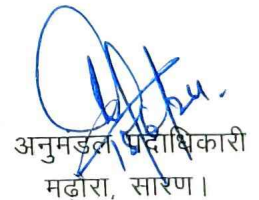 अनुमंडल पदाधिकारी
मढ़ौरा, सारण।